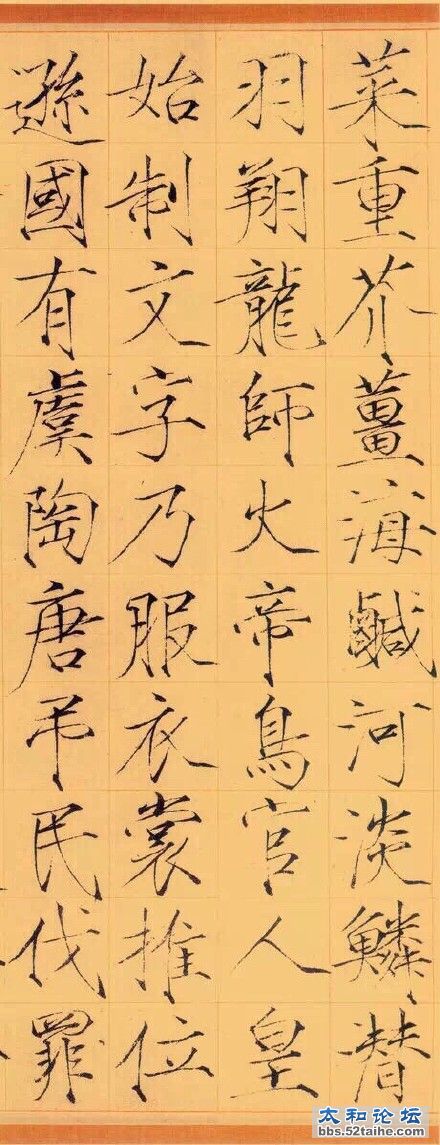 菜重芥薑海鹹河淡鱗潛
羽翔龍師火帝鳥官人皇
始制文字乃服衣裳推位
遜國有虞陶唐弔民伐罪
太和论坛
bbs.52taihe.com